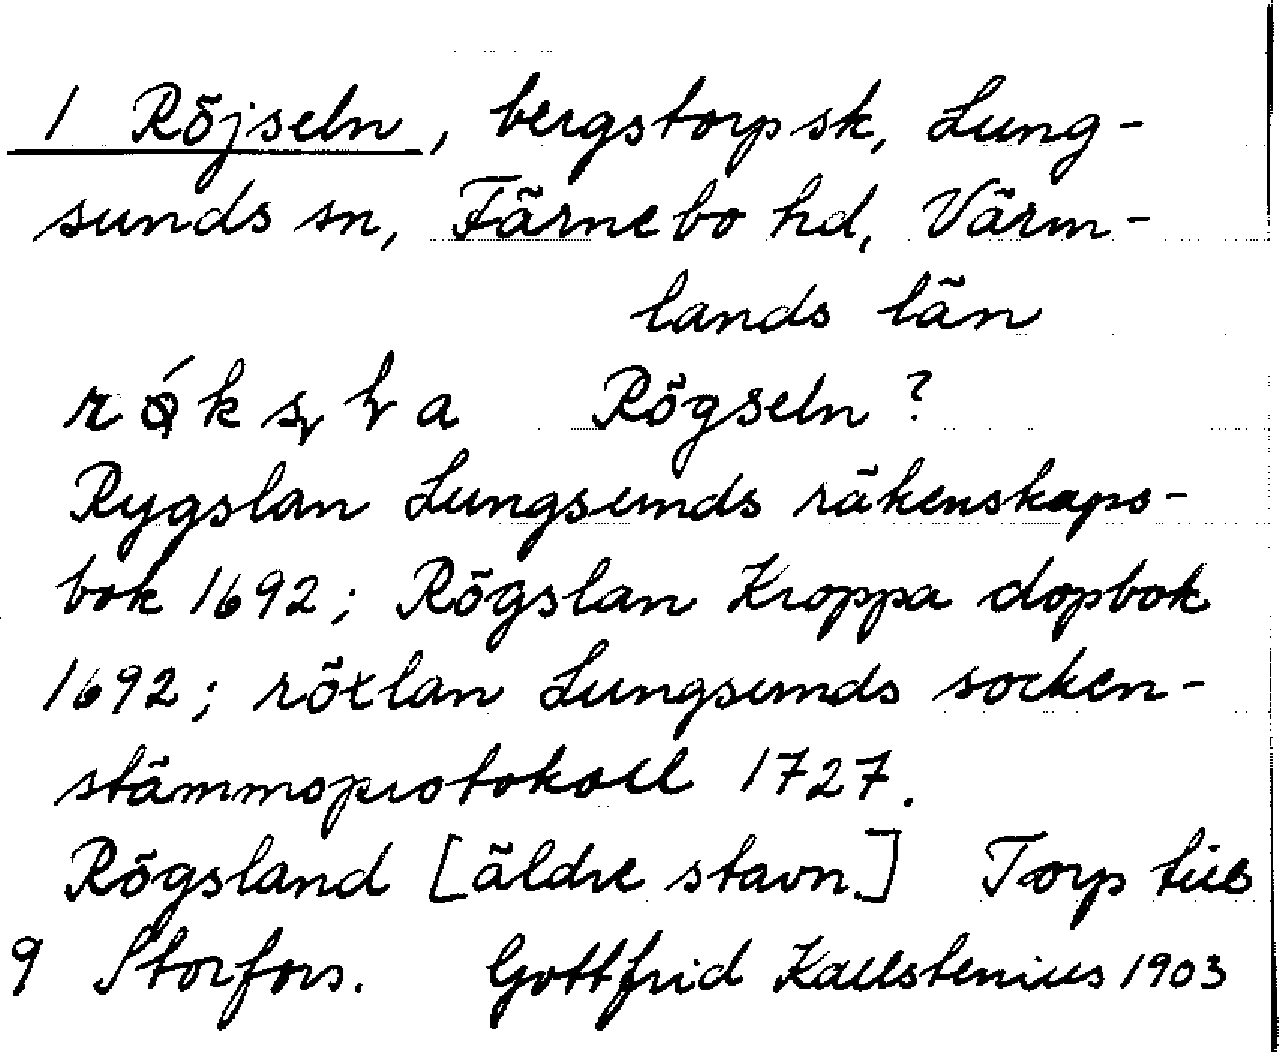 1 Röjseln, bergstorpsk, Lung-
sunds sn, Färnebo hd, Värm-
lands län
Rögseln?
Rygslan Lungsunds räkenskaps-
bok 1692; Rögslan Kroppa dopbok
1692; röxlan Lungsunds socken-
stämmoprotokoll 1727.
Rögsland [äldre stavn.] Torp till
9 Storfors. Gottfrid Kallstenius 1903